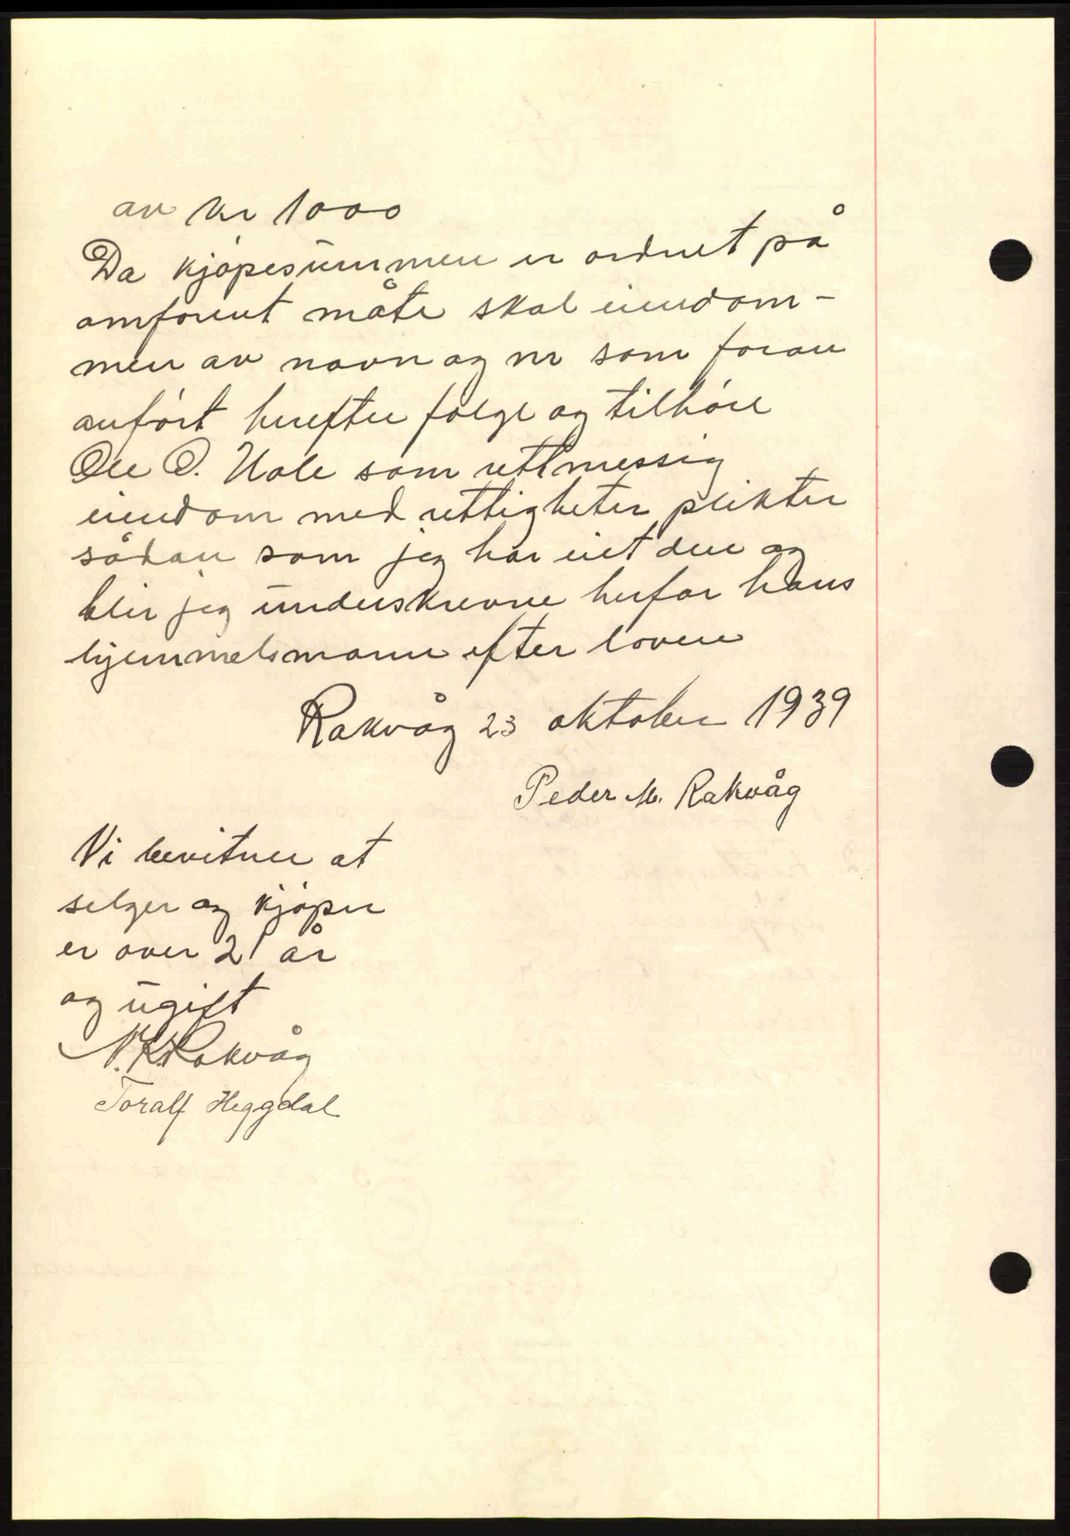 av kr 1000
Da kjøpesummen er ordnet på
omforent måte skal eiendom-
men av navn og nr som foran
anført herefter følge og tilhøre
Ole O. Hole som rettmessig
eiendom med rettigheter plikter
sådan som jeg har eiet den og
blir jeg underskrevne herfor hans
hjemmelsmann efter loven
Rakvåg 23 oktober 1939
Peder M. Rakvåg
Vi bevitner at
selger og kjøper
er over 21 år
og ugift
N. K. Rakvåg
Toralf Heggdal